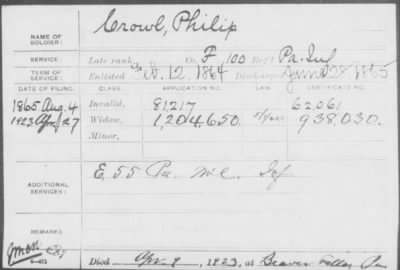 Crowl, Philip
NAME OF SOLDIER:
SERVICE: Late rank Co. F 100 Reg't Pa. Inf
TERM OF SERVICE: Enlisted 12, 1864 Discharged June 28 1865
DATE OF FILING. CLASS. APPLICATION NO. LAW. CERTIFICATE NO.
1865 Aug. 4 Invalid, 81,217 62,061
1923 Apr 27 Widow, 1,204,650 938,030.
Minor,
E, 55 Pa. Inf
ADDITIONAL SERVICES:
REMARKS:
Died Apr 9, 1923, at Beaver Falls Pa